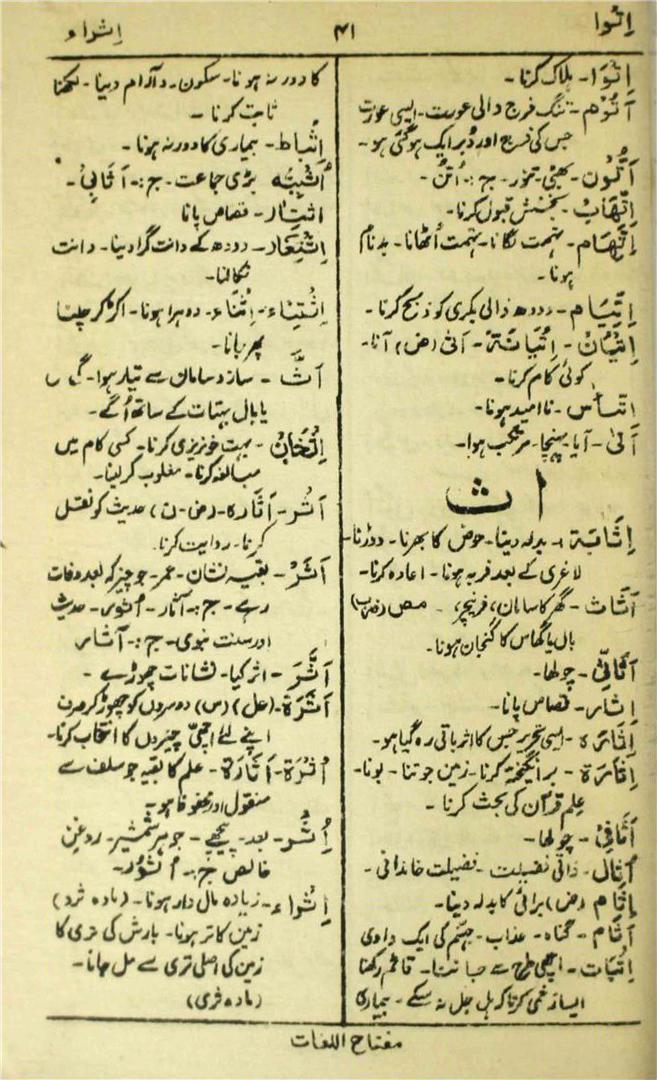 اِتْوا
۴۱
اِثواء
اِتْوَا - ہلاک کرنا -
آتُوْم - تنگ فرج والی عورت - ایسی عورت
جس کی فرج اور دُبر ایک ہو گئی ہو -
اَتُّوْن - بھٹی - تنور - ج :- اُتُنٌ -
اِتِّهَابٌ - بخشش قبول کرنا -
اِتِّهَام - تہمت لگانا - تہمت اُٹھانا - بدنام
ہونا -
اِتِّيَام - دودھ والی بکری کو ذبح کرنا -
اِتْيَانٌ - اِتْيَانَةً - اَتٰی (ض) آنا -
کوئی کام کرنا -
اتیاس - نا امید ہونا -
اَتٰی - آیا - پہنچا - مرتکب ہوا -
ا ث
اِثَابَة - بدلہ دینا - حوض کا بھرنا - دوڑنا -
لاغری کے بعد فربہ ہونا - اعادہ کرنا -
اَثَاث - گھر کا سامان، فرنیچر، - مص (ض ن)
بال یا گھاس کا گنجان ہونا -
اَثَافِیّ - چولھا -
اِثَار - قصاص پانا -
اِثَارَه - ایسی تحریر جس کا اثر باقی رہ گیا ہو -
اِثَارَة - برانگیختہ کرنا - زمین جوتنا - بونا -
علم قرآن کی بحث کرنا -
اَثَافِیْ - چولھا -
اُثال - ذاتی فضیلت - فضیلت خاندانی -
اِثَام (ض) برائی کا بدلہ دینا -
اَثَام - گناہ - عذاب - جہنم کی ایک وادی
اِثْبَات - اچھی طرح سے جاننا - قائم رکھنا
ایسا زخمی کرنا کہ ہل جل نہ سکے - بیماری
کا دور نہ ہونا - سکون - و آرام دینا - لکھنا
ثابت کرنا -
اِثْبَاط - بیماری کا دور نہ ہونا -
اُثْبِيَّه بڑی جماعت - ج :- اَثَابِیُّ -
اثْتِئَار - قصاص پانا
اِثْتِعَار - دودھ کے دانت گرا دینا - دانت
نکالنا -
اِثْتِنَاء - اِثْنَاء - دوہرا ہونا - اکڑ کر چلنا
پھر جانا -
اَثَّ - ساز و سامان سے تیار ہوا -
یا بال بہتات کے ساتھ اُگے -
اِثْخَانٌ - بہت خونریزی کرنا - کسی کام میں
مبالغہ کرنا - مغلوب کر لینا -
اَثْر - اَثَارَة - (ض - ن) حدیث کو نقل
کرنا - روایت کرنا -
اَثَرْ - بقیہ نشان - عمر - جو چیز کہ بعد وفات
رہے - ج :- آثار - اُثور - حدیث
اور سنت نبوی - ج :- آثار
اَثَّرَ - اثر کیا - نشانات چھوڑے -
اَثَرَة - (عل) (س) دوسروں کو چھوڑ کر صرف
اپنے لئے اچھی چیزوں کا انتخاب کرنا -
اُثْرَة - اَثَارَة - علم کا بقیہ جو سلف سے
منقول اور محفوظ ہو -
اُثْر - بعد - پیچھے - جوہر شمشیر - روغن
خالص ج :- اُثُوْر -
اِثْواء - زیادہ مال دار ہونا - (ماده ثرد)
زمین کا تر ہونا - بارش کی تری کا
زمین کی اصلی تری سے مل جانا -
(ماده ثری)
مفتاح اللغات